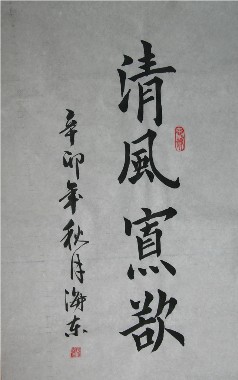 清風寡欲
辛卯年秋月海东